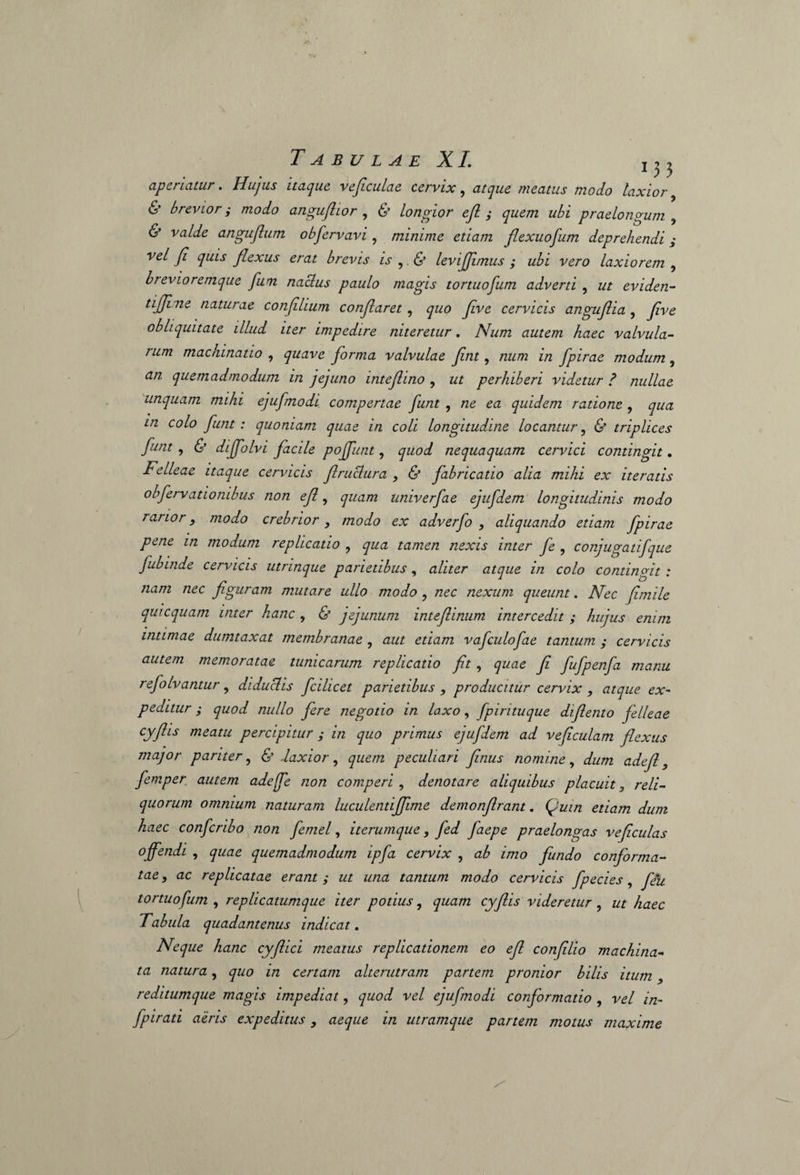 TABULAE XI. 133
aperiatur. Hujus itaque veſiculae cervix, atque meatus modo laxior,
& brevior; modo anguſtior, & longior eſt; quem ubi praelongum,
& valde anguſtum obſervavi, minime etiam flexuoſum deprehendi;
vel ſi quis flexus erat brevis is, & leviſſimus; ubi vero laxiorem,
brevioremque ſum nactus paulo magis tortuoſum adverti, ut eviden-
tiſſime naturae conſilium conſtaret, quo ſive cervicis anguſtia, ſive
obliquitate illud iter impedire niteretur. Num autem haec valvula-
rum machinatio, quave forma valvulae ſint, num in ſpirae modum,
an quemadmodum in jejuno inteſtino, ut perhiberi videtur? nullae
unquam mihi ejuſmodi compertae ſunt, ne ea quidem ratione, qua
in colo ſunt: quoniam quae in coli longitudine locantur, & triplices
ſunt, & diſſolvi facile poſſunt, quod nequaquam cervici contingit.
Felleae itaque cervicis ſtructura, & fabricatio alia mihi ex iteratis
obſervationibus non eſt, quam univerſae ejuſdem longitudinis modo
rarior, modo crebrior, modo ex adverſo, aliquando etiam ſpirae
pene in modum replicatio, qua tamen nexis inter ſe, conjugatiſque
ſubinde cervicis utrinque parietibus, aliter atque in colo contingit:
nam nec figuram mutare ullo modo, nec nexum queunt. Nec ſimile
quicquam inter hanc, & jejunum inteſtinum intercedit; hujus enim
intimae dumtaxat membranae, aut etiam vaſculoſae tantum; cervicis
autem memoratae tunicarum replicatio fit, quae ſi ſuſpenſa manu
reſolvantur, diductis ſcilicet parietibus, producitur cervix, atque ex-
peditur; quod nullo fere negotio in laxo, ſpirituque diſtento felleae
cyſtis meatu percipitur; in quo primus ejuſdem ad veſiculam flexus
major pariter, & laxior, quem peculiari ſinus nomine, dum adeſt,
ſemper autem adeſſe non comperi, denotare aliquibus placuit, reli-
quorum omnium naturam luculentiſſime demonſtrant. Quin etiam dum
haec conſcribo non ſemel, iterumque, ſed ſaepe praelongas veſiculas
offendi, quae quemadmodum ipſa cervix, ab imo fundo conforma-
tae, ac replicatae erant; ut una tantum modo cervicis ſpecies, ſeu
tortuoſum, replicatumque iter potius, quam cyſtis videretur, ut haec
Tabula quadantenus indicat.
Neque hanc cyſtici meatus replicationem eo eſt conſilio machina-
ta natura, quo in certam alterutram partem pronior bilis itum,
reditumque magis impediat, quod vel ejuſmodi conformatio, vel in-
ſpirati aëris expeditus, aeque in utramque partem motus maxime